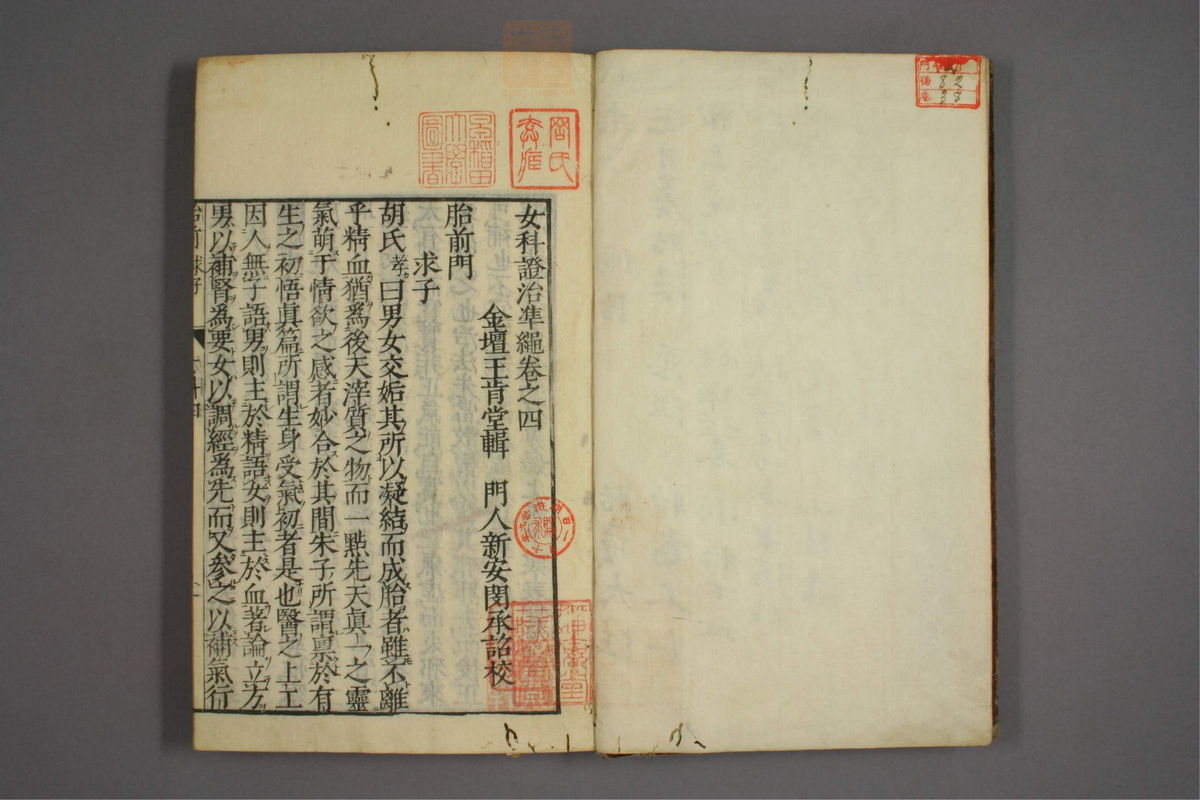 女科證治準繩卷之四
金壇王肯堂輯 門人新安閔承詔校
胎前門
求子
胡氏孝曰男女交姤其所以凝結而成胎者雖不離
乎精血猶為後天滓質之物而一點先天真一之靈
氣萌于情欲之感者妙合於其間朱子所謂稟於有
生之初悟真篇所謂生身受氣初者是也醫之上工
因人無子語男則主於精語女則主於血著論立方
男以補腎為要女以調經為先而又參之以補氣行
胎前 求子
早稲田大學圖書